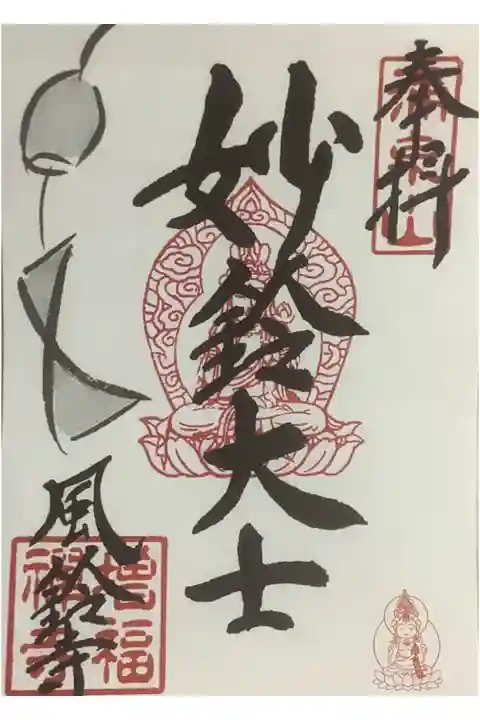 奉拝
妙鈴大士
風鈴寺
増福
禅寺